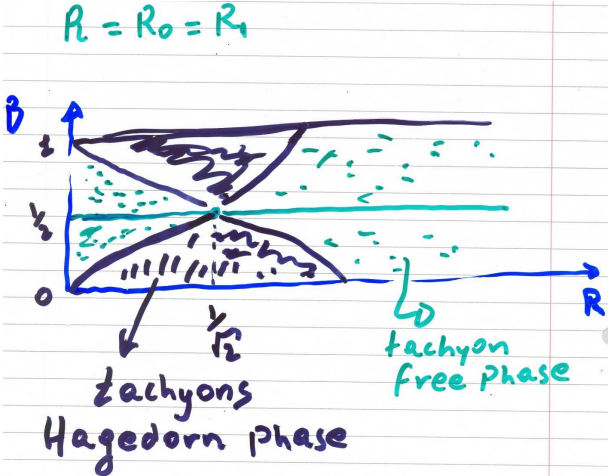 R = R₀ = R₁
B
1
1/2
0
R
1/√2
tachyon
free phase
tachyons
Hagedorn phase